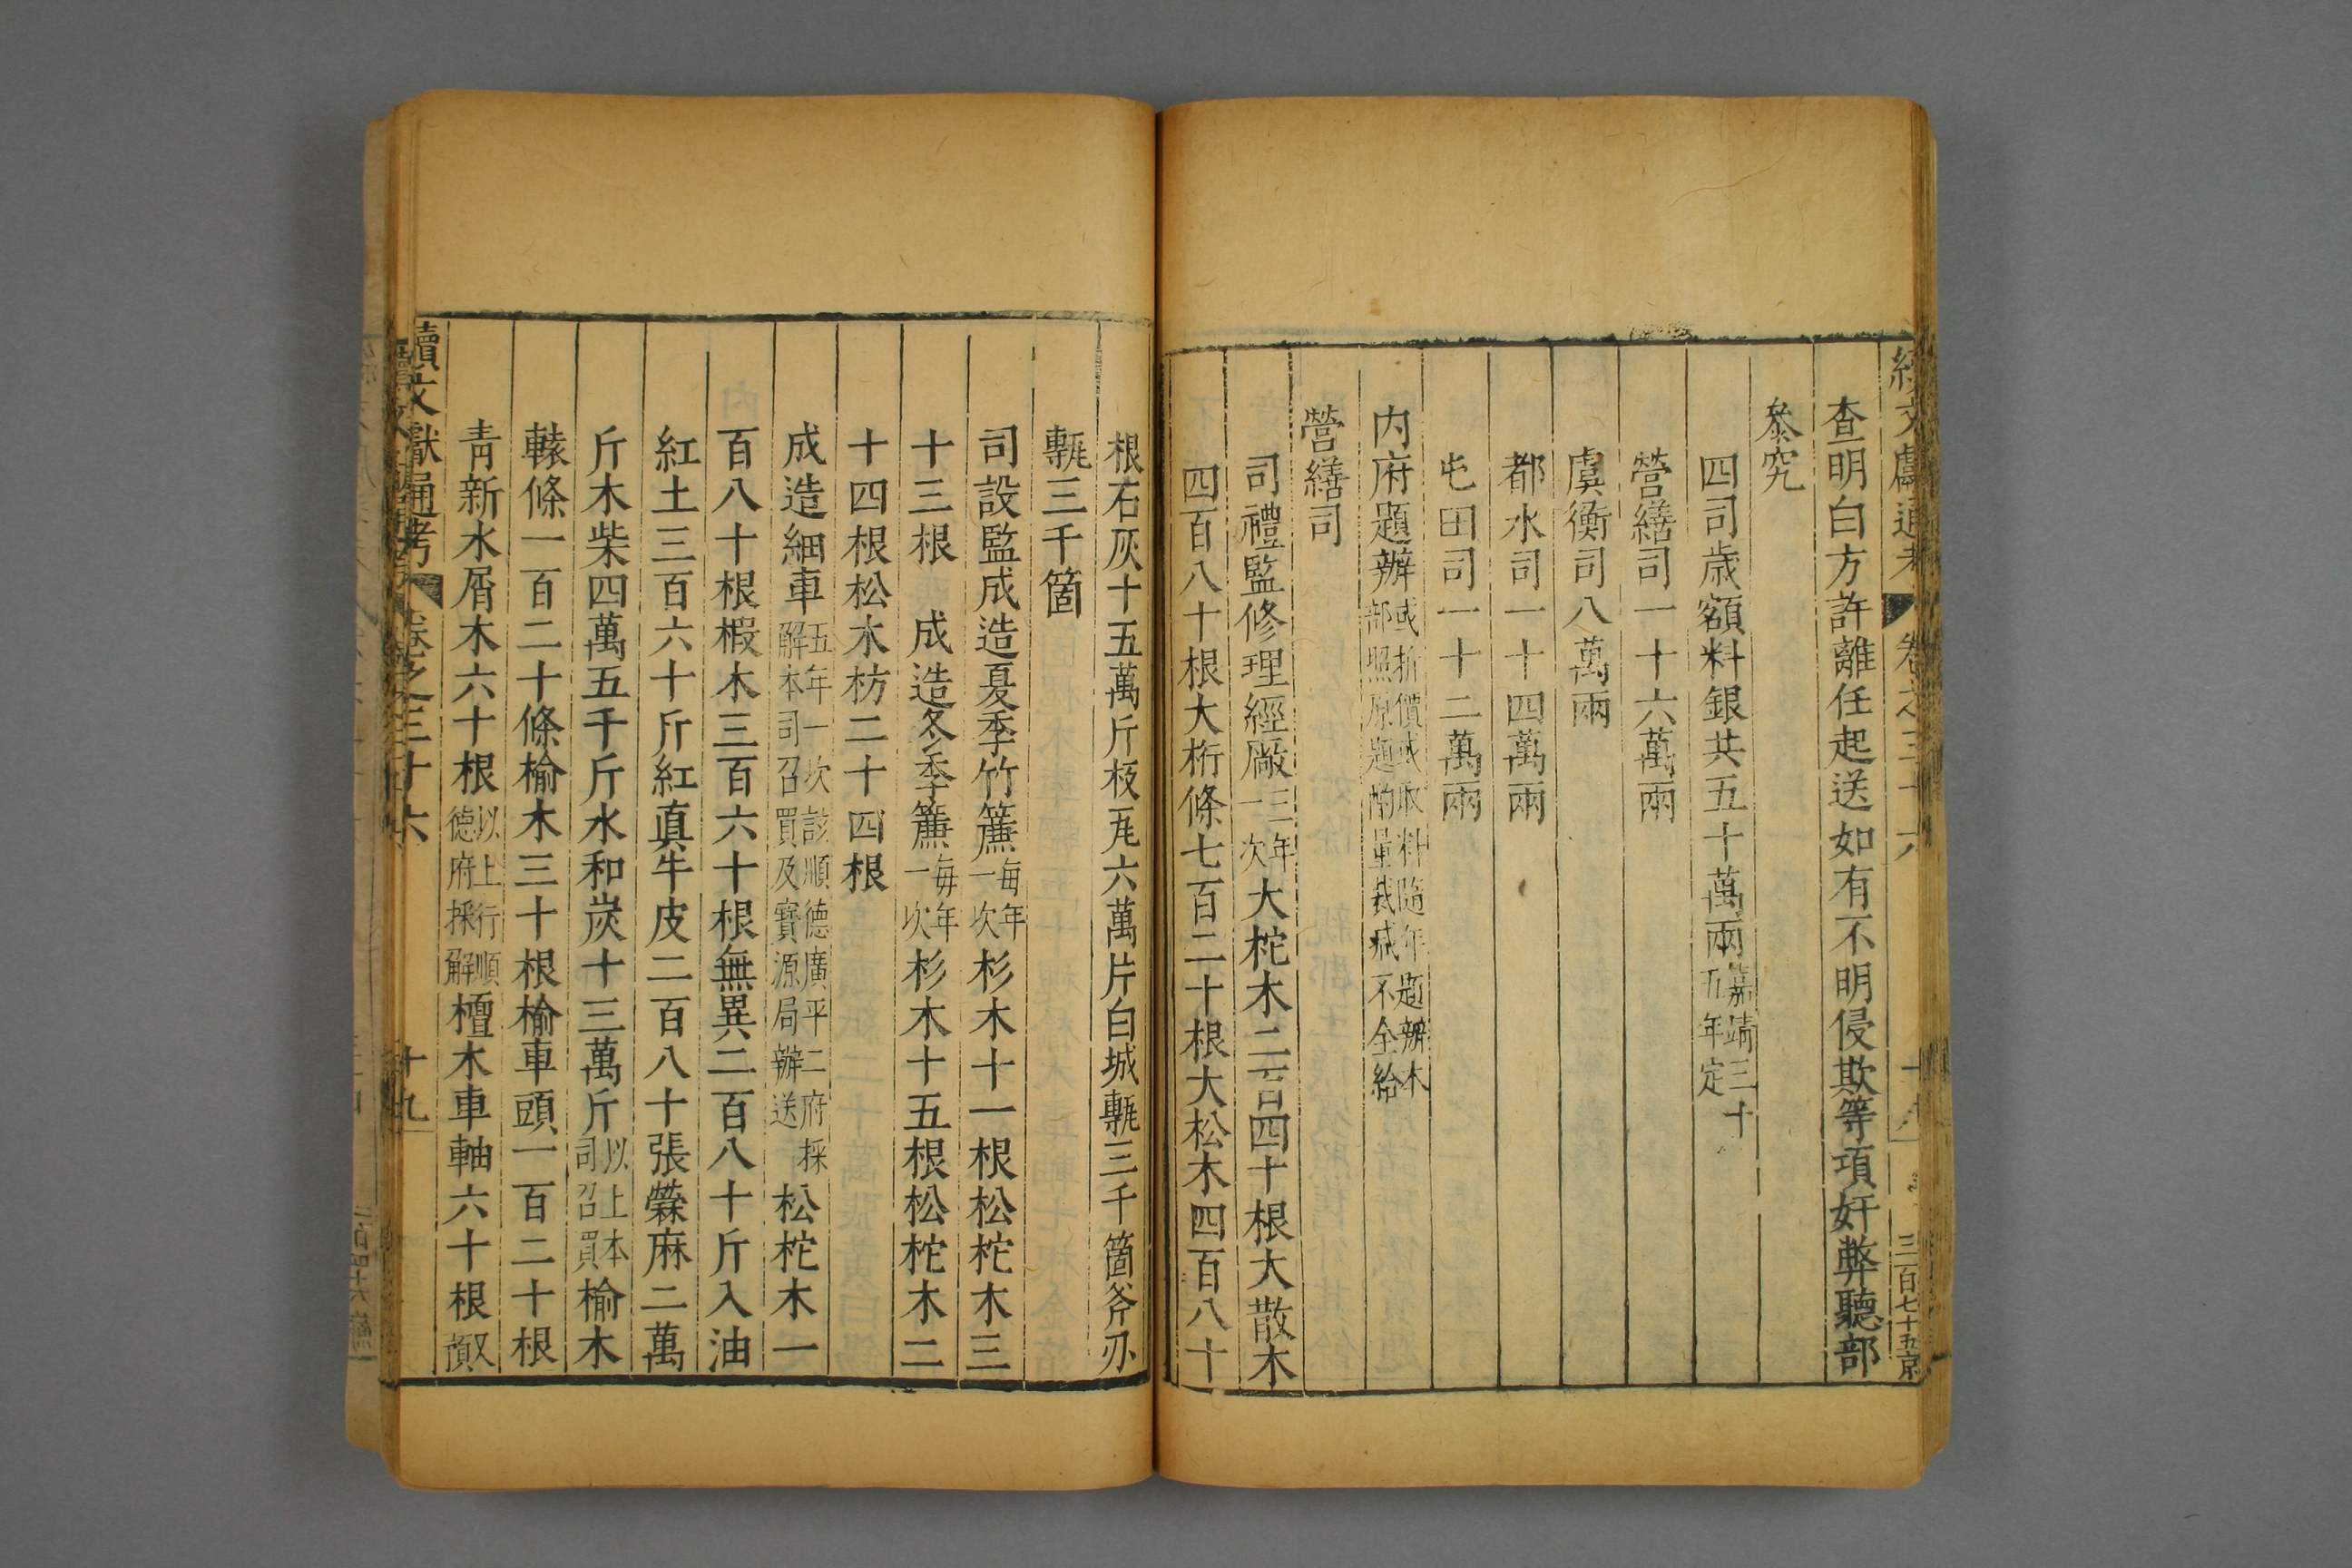 續文獻通考 卷之三十六 三百七十五
查明白方許離任起送如有不明侵欺等項奸弊聽部
叅究
四司歲額料銀共五十萬兩嘉靖三十五年定
營繕司一十六萬兩
虞衡司八萬兩
都水司一十四萬兩
屯田司一十二萬兩
内府題辦或折價或取料隨年題辦本部照原題酌量裁减不全給
營繕司
司禮監修理經廠三年一次大柁木二百四十根大散木
四百八十根大桁條七百二十根大松木四百八十
根石灰十五萬斤板瓦六萬片白城甎三千箇斧刃
甎三千箇
司設監成造夏季竹簾每年一次杉木十一根松柁木三
十三根 成造冬季簾每年一次杉木十五根松柁木二
十四根松木枋二十四根
成造細車五年一次該順德廣平二府採解本司召買及寶源局辦送松柁木一
百八十根椵木三百六十根無異二百八十斤入油
紅土三百六十斤紅真牛皮二百八十張檾麻二萬
斤木柴四萬五千斤水和炭十三萬斤以上本司召買榆木
轅條一百二十條榆木三十根榆車頭一百二十根
青新水屑木六十根以上行順德府採解檀木車軸六十根
續文獻通考 卷之三十六 十九